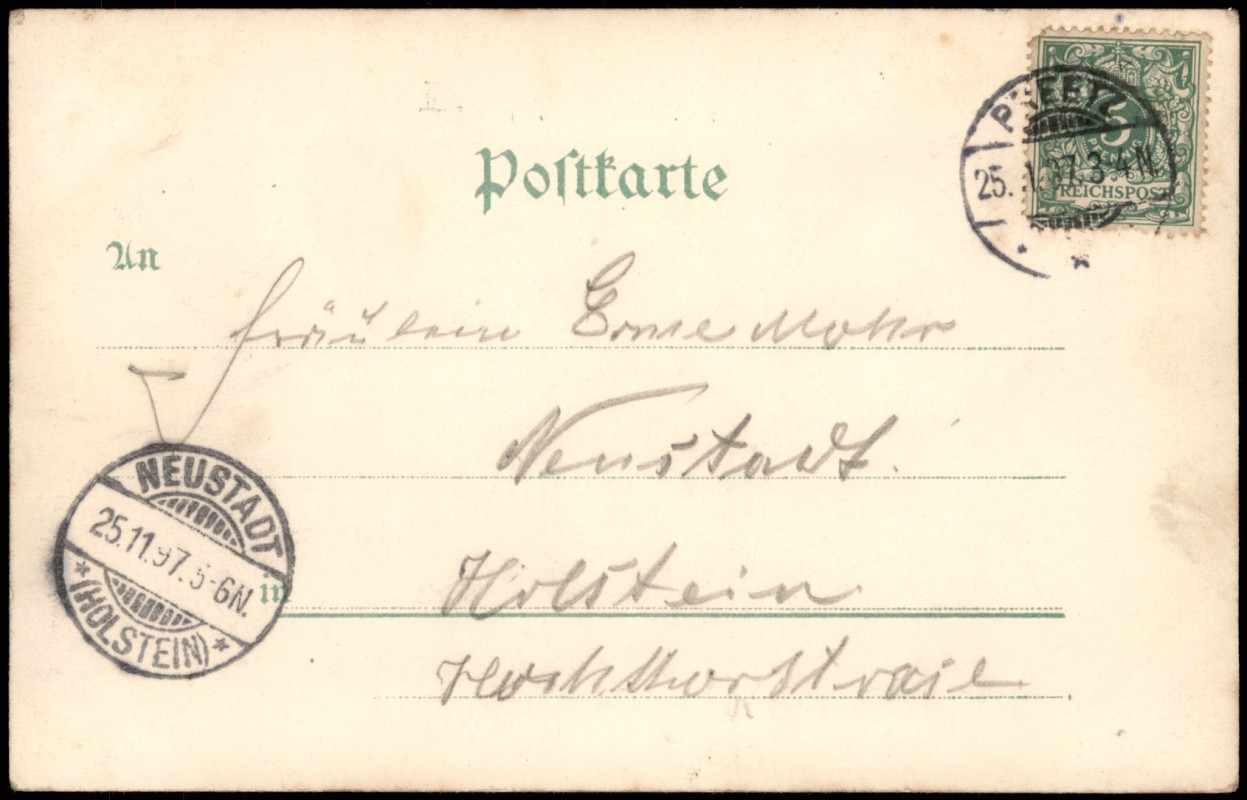 Postkarte
PREETZ
25. 1.97. 3-4N.
5
REICHSPOST
An
Fräulein Erne Mohr
Neustadt.
NEUSTADT
25.11.97. 5-6N.
(HOLSTEIN)
in
Holstein.